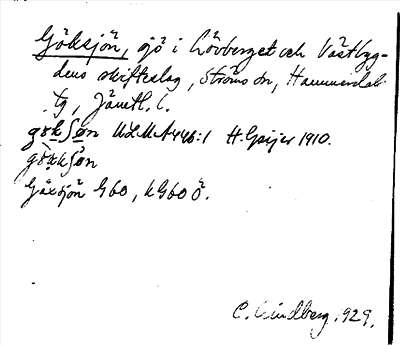 Göksjön, sjö i Lövberget och Västbyg-
dens skifteslag, Ströms sn, Hammerdals
tg, Jämtl. l.
gøkʃøn ULMA 446:1 H. Geijer 1910.
gøkʃøn
Gäxsjön G60, kG60Ö.
C. Lindberg. 1929.